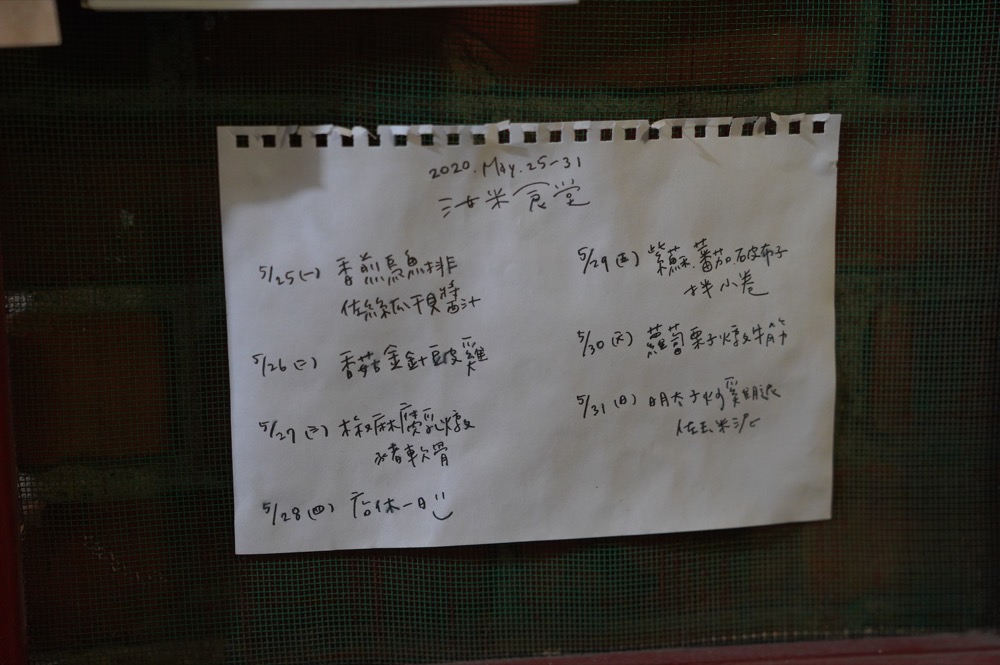 2020.May.25-31
汝米食堂
5/25(一) 香煎烏魚排
佐絲瓜干貝醬汁
5/26(二) 香菇金針破雞
5/27(三) 椒麻腐乳燉
豬軟骨
5/28(四) 店休一日
5/29(五) 紫蘇.蕃茄破布子
拌小卷
5/30(六) 蘿蔔栗子燉牛筋
5/31(日) 明太子炒雞腿
佐玉米泥